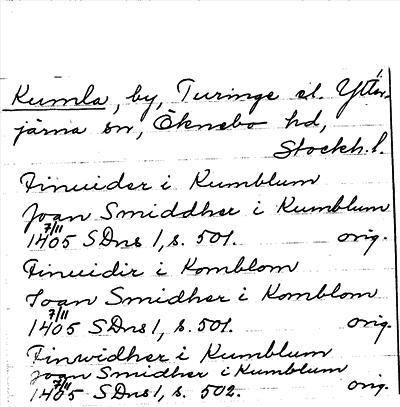 Kumla, by, Turinge el. Ytter-
järna sn, Öknebo hd,
Stockh. l.
Finuider i Kumblum
Joan Smiddher i Kumblum
7/11 1405 SDns 1, s. 501. orig.
Finuidir i Komblom
Joan Smidher i Komblom
7/11 1405 SDns 1, s. 501. orig.
Finwidher i Kumblum
Joan Smidher i Kumblum
7/11 1405 SDns 1, s. 502. orig.